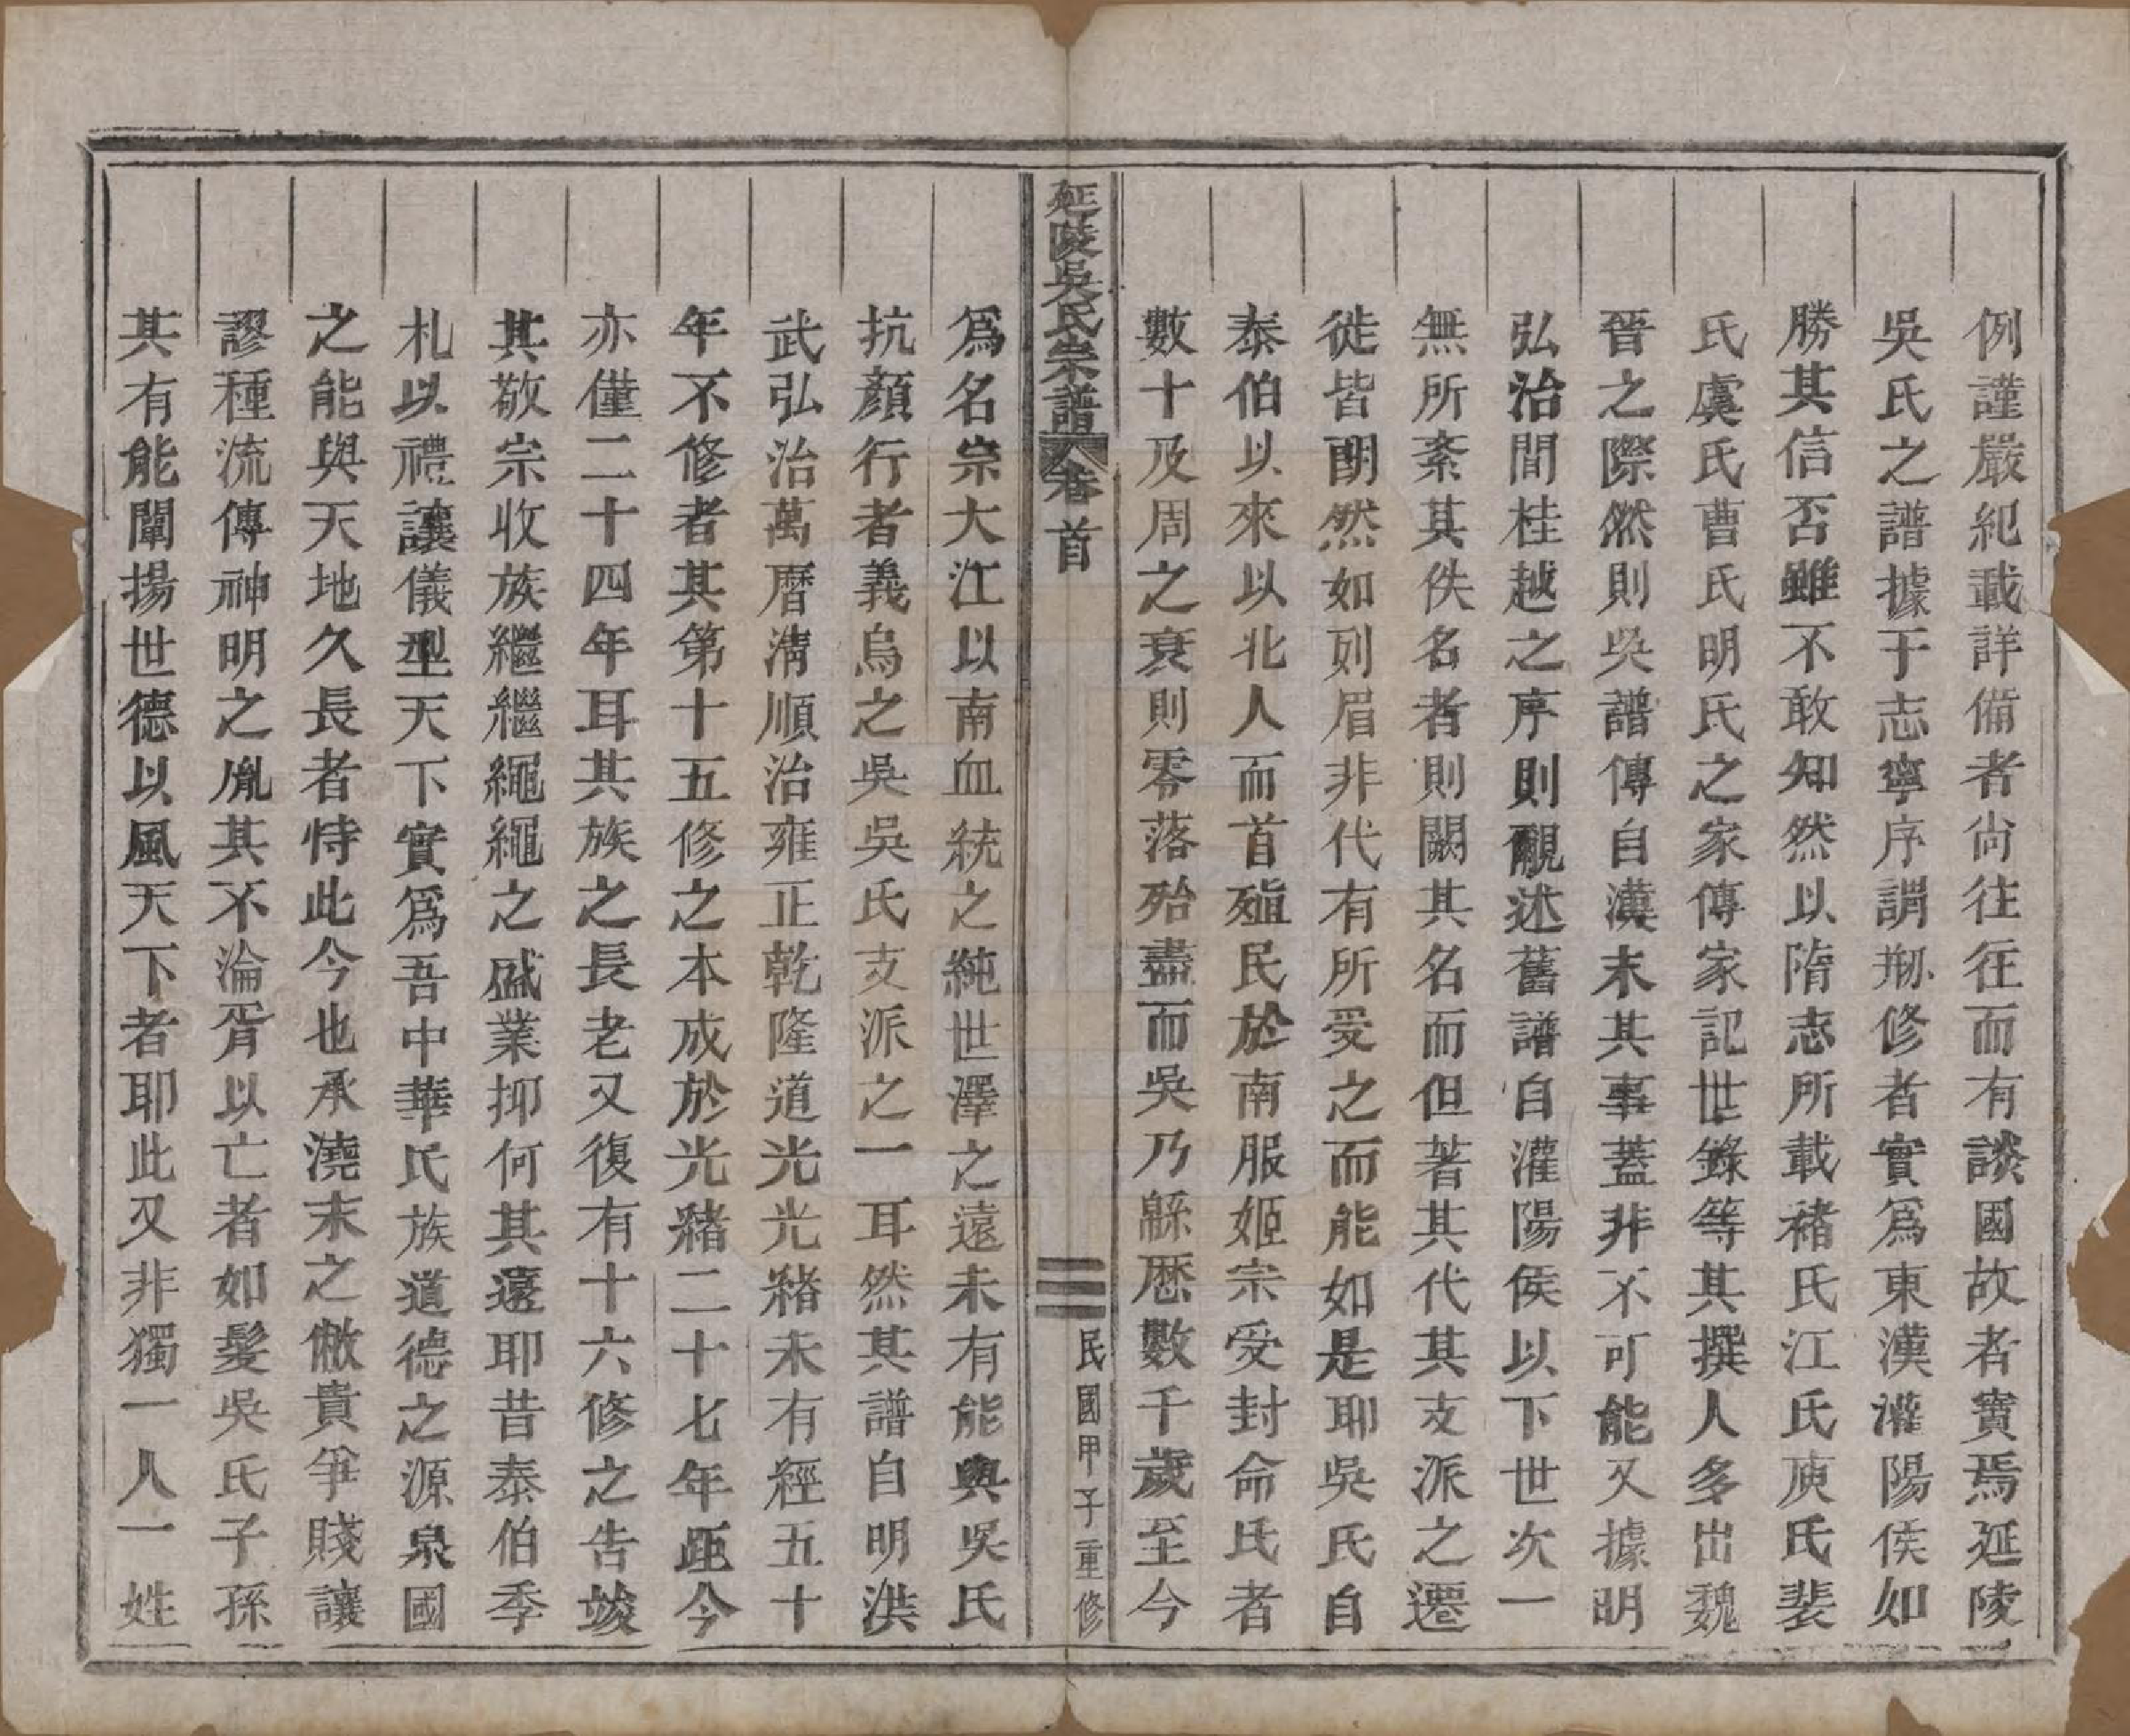 例謹嚴紀載詳備者尙往往而有談國故者寶焉延陵
吳氏之譜據于志寧序謂剏修者實爲東漢灌陽侯如
勝其信否雖不敢知然以隋志所載褚氏江氏庾氏裴
氏虞氏曹氏明氏之家傳家記世錄等其撰人多出魏
晉之際然則吳譜傳自漢末其事蓋非不可能又據明
弘治間桂越之序則覼述舊譜自灌陽侯以下世次一
無所紊其佚名者則闕其名而但著其代其支派之遷
徙皆朙然如列眉非代有所受之而能如是耶吳氏自
泰伯以來以北人而首殖民於南服姬宗受封命氏者
數十及周之衰則零落殆盡而吳乃緜歷數千歲至今
延陵吳氏宗譜
卷首
三
民國甲子重修
爲名宗大江以南血統之純世澤之遠未有能與吳氏
抗顏行者義烏之吳吳氏支派之一耳然其譜自明洪
武弘治萬曆淸順治雍正乾隆道光光緒未有經五十
年不修者其第十五修之本成於光緒二十七年距今
亦僅二十四年耳其族之長老又復有十六修之告竣
其敬宗收族繼繼繩繩之盛業抑何其遠耶昔泰伯季
札以禮讓儀型天下實爲吾中華氏族道德之源泉國
之能與天地久長者恃此今也承澆末之敝貴爭賤讓
謬種流傳神明之胤其不淪胥以亡者如髮吳氏子孫
其有能闡揚世德以風天下者耶此又非獨一人一姓